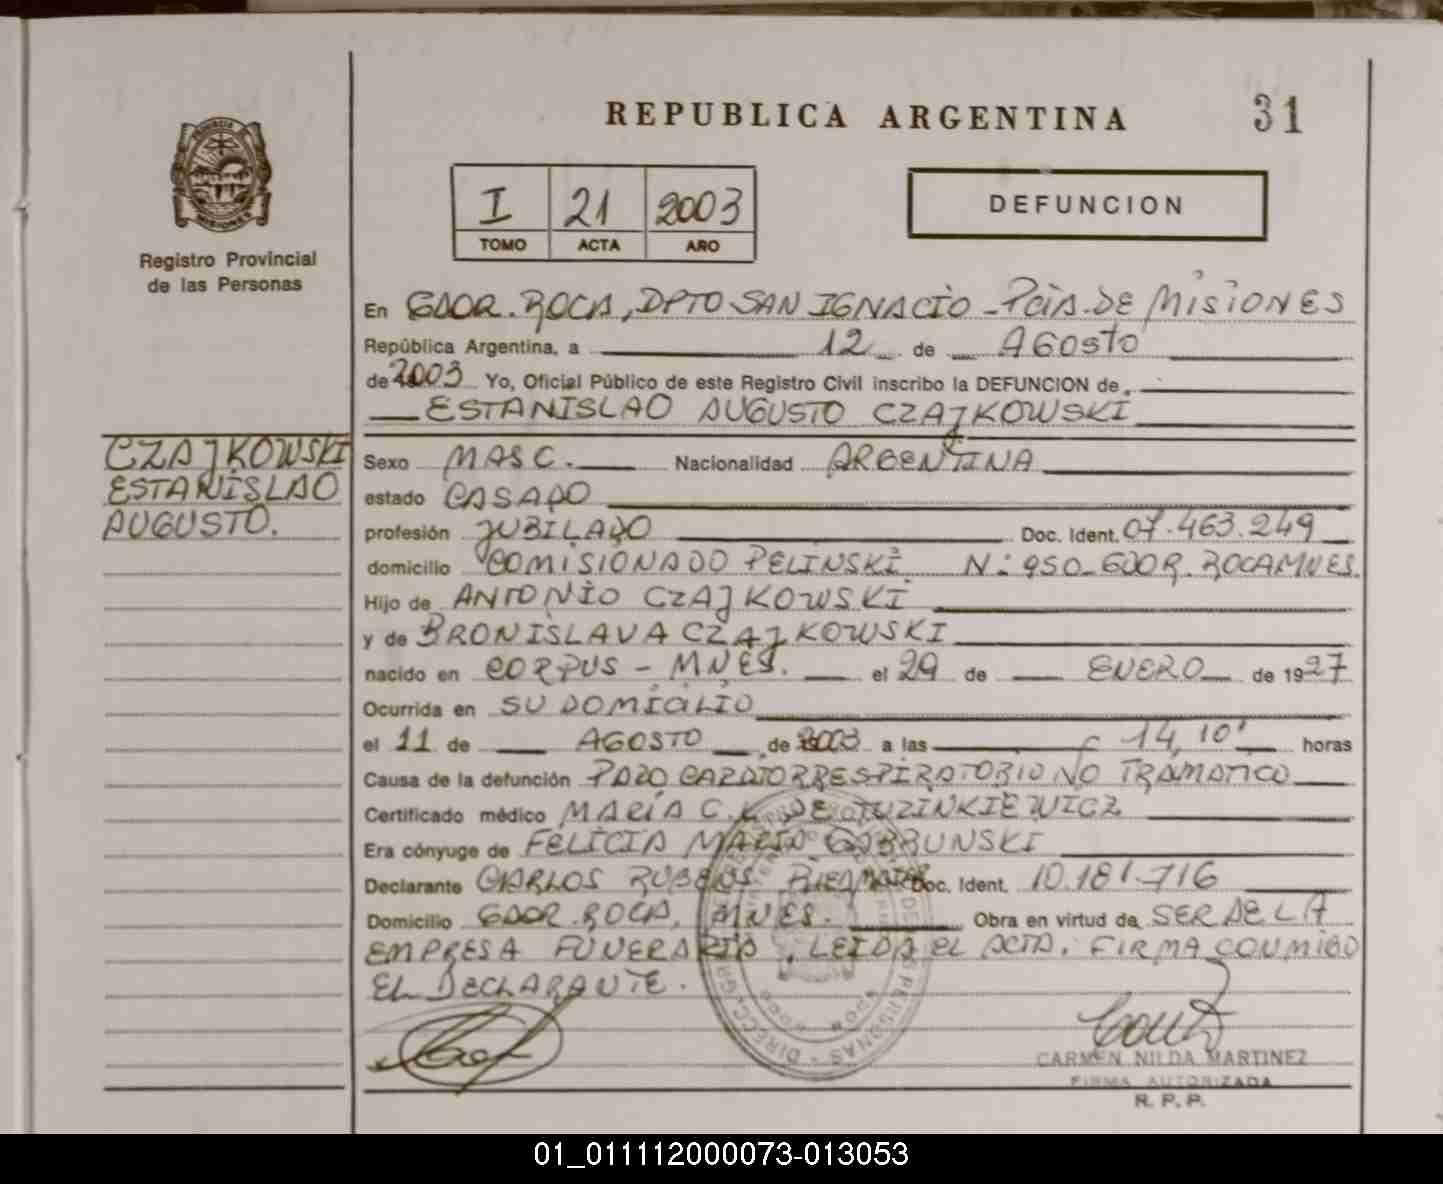 REPUBLICA ARGENTINA
31
I 21 2003
TOMO ACTA AÑO
DEFUNCION
PROVINCIA DE
MISIONES
Registro Provincial
de las Personas
En GDOR. ROCA, DPTO SAN IGNACIO - PCIA. DE MISIONES
República Argentina, a 12 de AGOSTO
de 2003 Yo, Oficial Público de este Registro Civil inscribo la DEFUNCION de
ESTANISLAO AUGUSTO CZAJKOWSKI
CZAJKOWSKI
ESTANISLAO
AUGUSTO.
Sexo MASC. Nacionalidad ARGENTINA
estado CASADO
profesión JUBILADO Doc. Ident. 07.463.249
domicilio COMISIONADO PELINSKI N: 950 - GDOR. ROCA MNES.
Hijo de ANTONIO CZAJKOWSKI
y de BRONISLAVA CZAJKOWSKI
nacido en CORPUS - MNES. el 29 de ENERO de 1927
Ocurrida en SU DOMICILIO
el 11 de AGOSTO de 2003 a las 14,10' horas
Causa de la defunción PARO CARDIORRESPIRATORIO NO TRAMATICO
Certificado médico MARÍA C. K. DE
Era cónyuge de FELICIA MARIA
Declarante CARLOS Doc. Ident. 10.181.716
Domicilio GDOR. ROCA, MNES. Obra en virtud de SER DE LA
EMPRESA FUNERARIA, LEIDA EL ACTA. FIRMA CONMIGO
EL DECLARANTE.
CARMEN NILDA MARTINEZ
FIRMA AUTORIZADA
R. P. P.
01_011112000073-013053